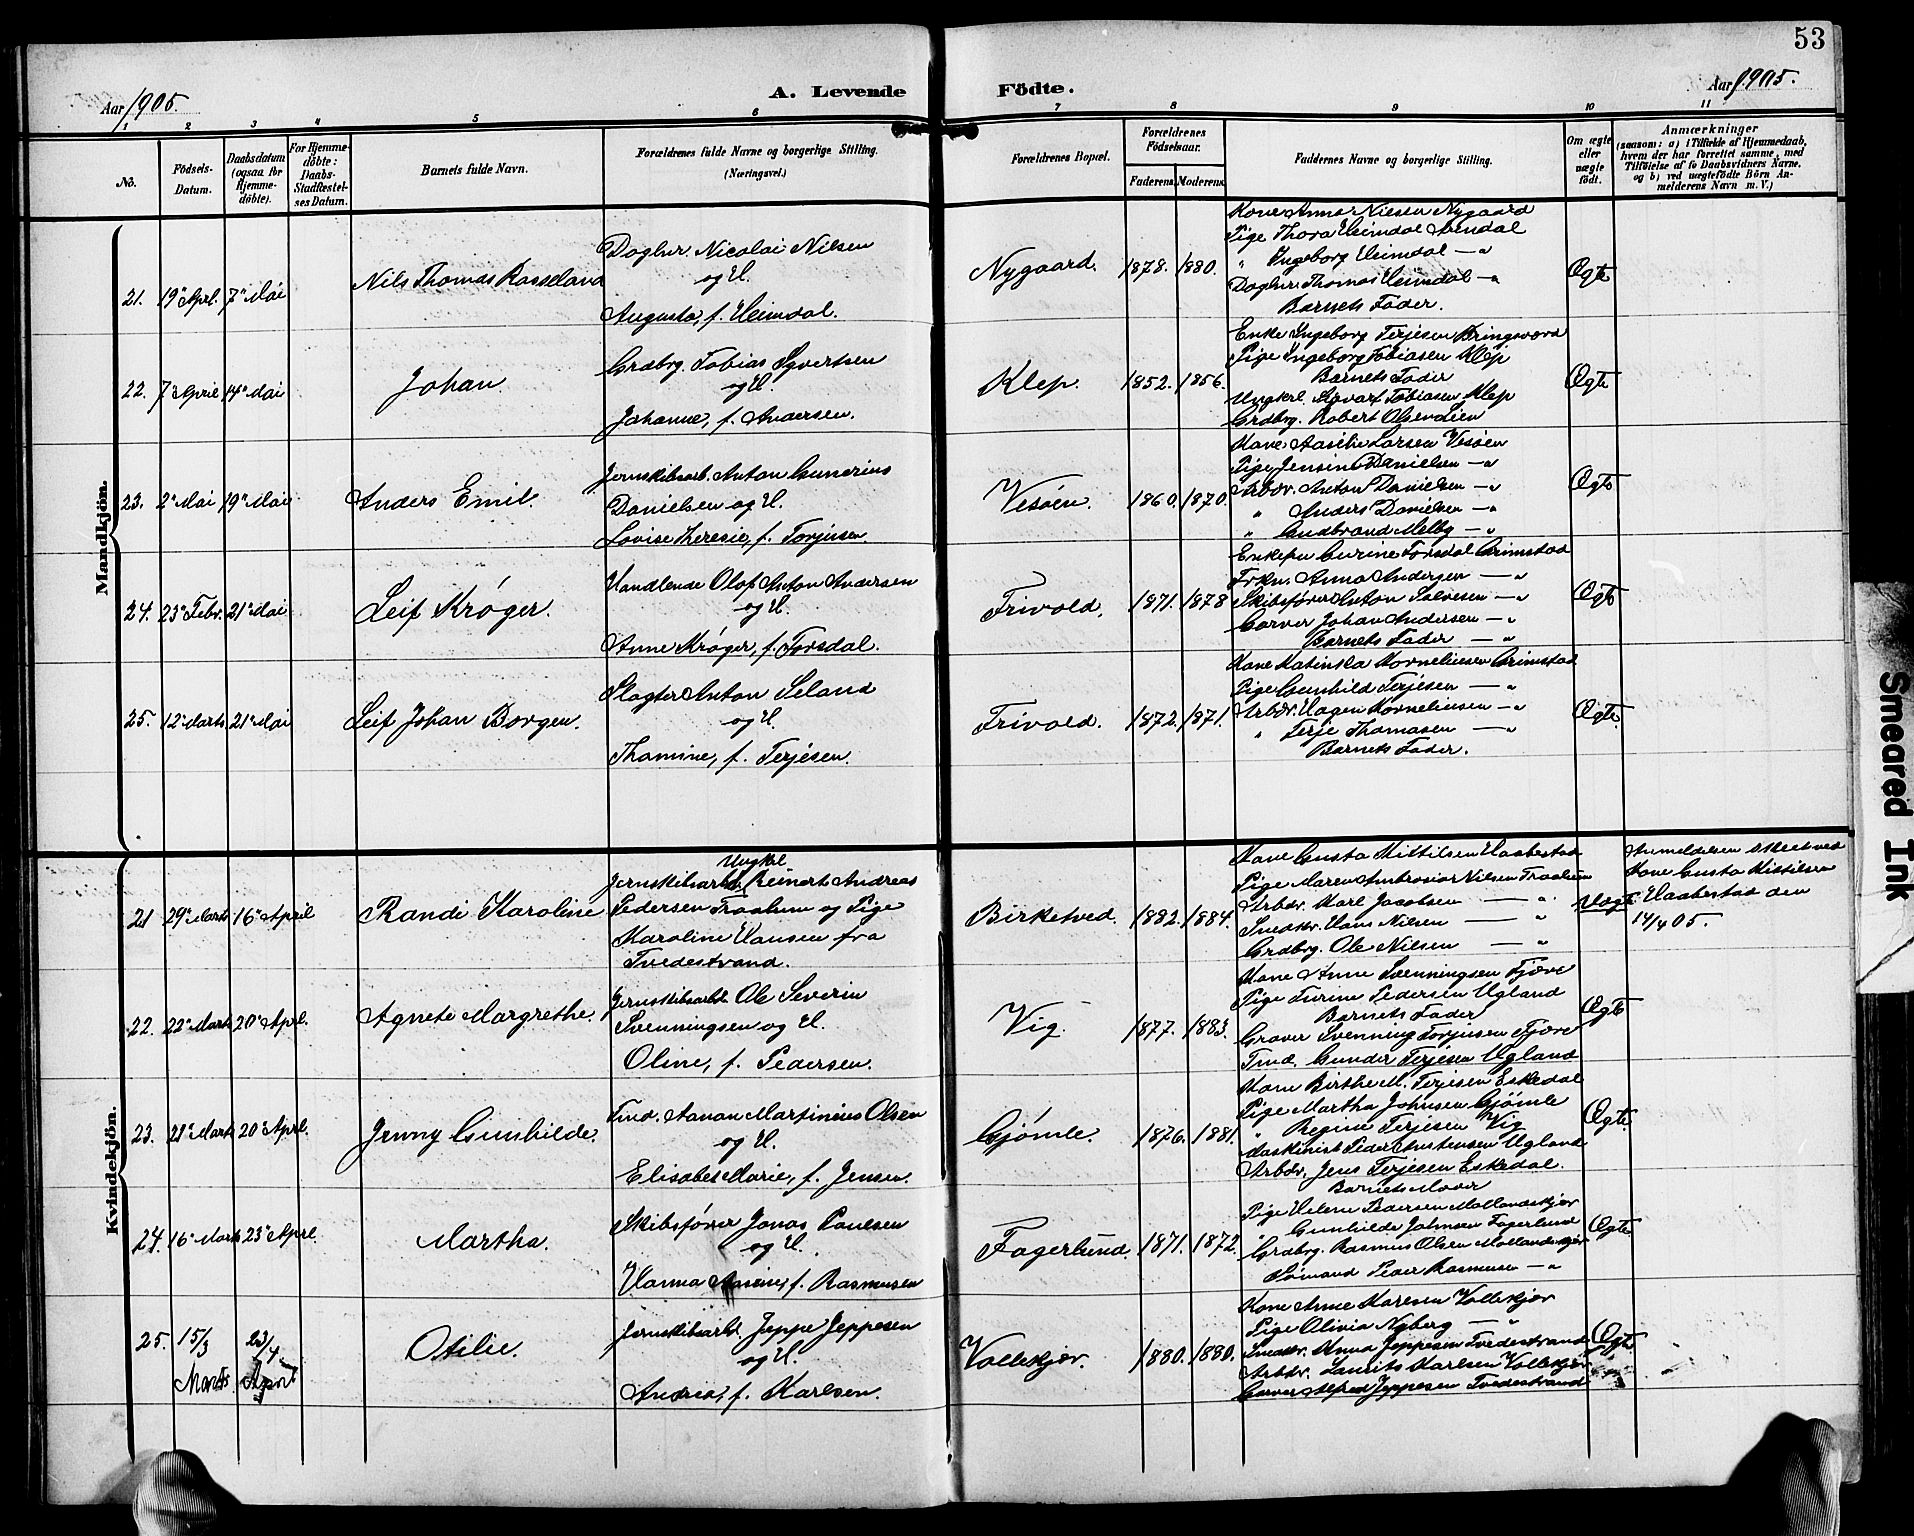 53
Aar 1905.
A. Levende Födte.
Aar 1905.
1 2 3 4 5 6 7 8 9 10 11
No.
Födsels-Datum.
Daabsdatum (ogsaa for Hjemme-döbte).
For Hjemme-döbte: Daabs-Stadfestel-ses Datum.
Barnets fulde Navn.
Forældrenes fulde Navne og borgerlige Stilling. (Næringsvei.)
Forældrenes Bopæl.
Forældrenes Födselsaar.
Faderens. Moderens.
Faddernes Navne og borgerlige Stilling.
Om ægte eller uægte födt.
Anmærkninger
(saasom: a) i Tilfælde af Hjemmedaab,
hvem der har forrettet samme, med
Tilföielse af to Daabsvidners Navne.
og b) ved uægtefödte Börn An-
melderens Navn m. V.)
Mandkjön.
21. 19de Aprl. 7de Mai
Nils Thomas Rosseland
Daglnr. Nicolai Nilsen
og H.
Augusta, f. Heimdal.
Nygaard. 1878. 1880.
Kone Anna Nilsen Nygaard
Pige Thora Heimdal Arendal
" Ingeborg Heimdal — "
Daglnr. Thomas Heimdal — "
Barnets Fader.
Ægte
22. 7de April 14de Mai
Johan.
Grdbrg. Tobias Syvertsen
og H.
Johanne, f. Andersen.
Klep. 1852. 1856.
Enke Ingeborg Terjesen Bringsværd
Pige Ingeborg Tobiasen Klep
Barnets Fader
Ungkrl. Syvert Tobiasen Klep
Grdbrg. Robert Olsen
Ægte
23. 2de Mai 19de Mai
Anders Emil.
Jernskibsarb. Anton Gunerius
Danielsen og H.
Lovise Theresie, f. Torjusen.
Vesøen. 1860. 1870.
Kone Larsen Vesøen
Pige Jensine Danielsen — "
Arbdr. Anton Danielsen — "
" Anders Danielsen — "
" Gudbrand Melby — "
Ægte
24. 23de Febr. 21de Mai
Leif Krøger.
Handlende Olaf Anton Andersen
og H.
Anne Krøger, f. Torsdal.
Frivold. 1871. 1878
Enkefru Gurine Torsdal Grimstad
Frkn. Anna Andersen — "
Skibsfører Anton Salvesen — "
Garver Johan Andersen — "
Barnets Fader — "
Ægte
25. 12de Marts 21de Mai
Leif Johan Borgen.
Slagter Anton Seland
og H.
Thomine, f. Terjesen.
Frivold. 1872. 1871.
Kone Katinka Korneliusen Grimstad
Pige Gunhild Terjesen — "
Arbdr. Hagen Korneliusen — "
" Terje Thomasen — "
Barnets Fader.
Ægte
Kvindekjön.
21 29de Marts 16de April
Randi Karoline
Ungkrl
Jernskibsarbdr. Reinert Andreas
Pedersen Traalum og Pige
Karoline Hansen fra
Tvedestrand.
Birketved. 1882. 1884.
Kone Gusta Kittilsen Haabestad
Pige Maren Nilsen Traalum
Arbdr. Karl Jacobsen — "
Snedkr. Hans Nilsen — "
Grdbrg. Ole Nilsen — "
Uægte
Anmelderen
Kone Gusta Kittilsen
Haabestad den
14/4 05.
22. 22de Marts 20de Aprl.
Agnete Margrethe.
Jernskibsarbdr. Ole Severin
Svenningsen og H.
Oline, f. Pedersen.
Vig. 1877. 1883.
Kone Anne Svenningsen Fjære
Pige Turine Pedersen Ugland
Barnets Fader
Graver Svenning Torjusen Fjære
Tmd. Gunder Terjesen Ugland
Ægte
23. 21de Marts 20de Aprl.
Jenny Gunhilde.
Tmd. Aanon Martinius Olsen
og H.
Elisabet Marie, f. Jensen.
Gjömle. 1876. 1881.
Kone Birthe M. Terjesen Eskedal
Pige Martha Johnsen Gjömle
" Regine Terjesen Vig
Maskinist Peder Ugland
Arbdr. Jens Terjesen Eskedal.
Ægte.
24. 16de Marts 23de Aprl.
Martha.
Skibsfører Jonas Paulsen
og H.
Hanna f. Rasmussen
Fagerlund. 1871. 1872.
Barnets Moder
Pige Helene Pedersen Mollandskjær
Gunhilde Johnsen Fagerlund
Grdbrg. Rasmus Olsen Mollandskjær
Sømand Peder Rasmusen — "
Ægte
25. 15/3 Marts 23/4 April
Otilie.
Jernskibsarbdr. Jeppe Jeppesen
og H.
Andrea, f. Karlsen.
Vollekjær. 1880. 1880.
Kone Anne Karlsen Vollekjær
Pige Olivia Nyberg — "
Anna Jeppesen Tvedestrand
Arbdr. Laurits Karlsen Vollekjær
Garver Alfred Jeppesen Tvedestrand
Ægte
Smeared Ink